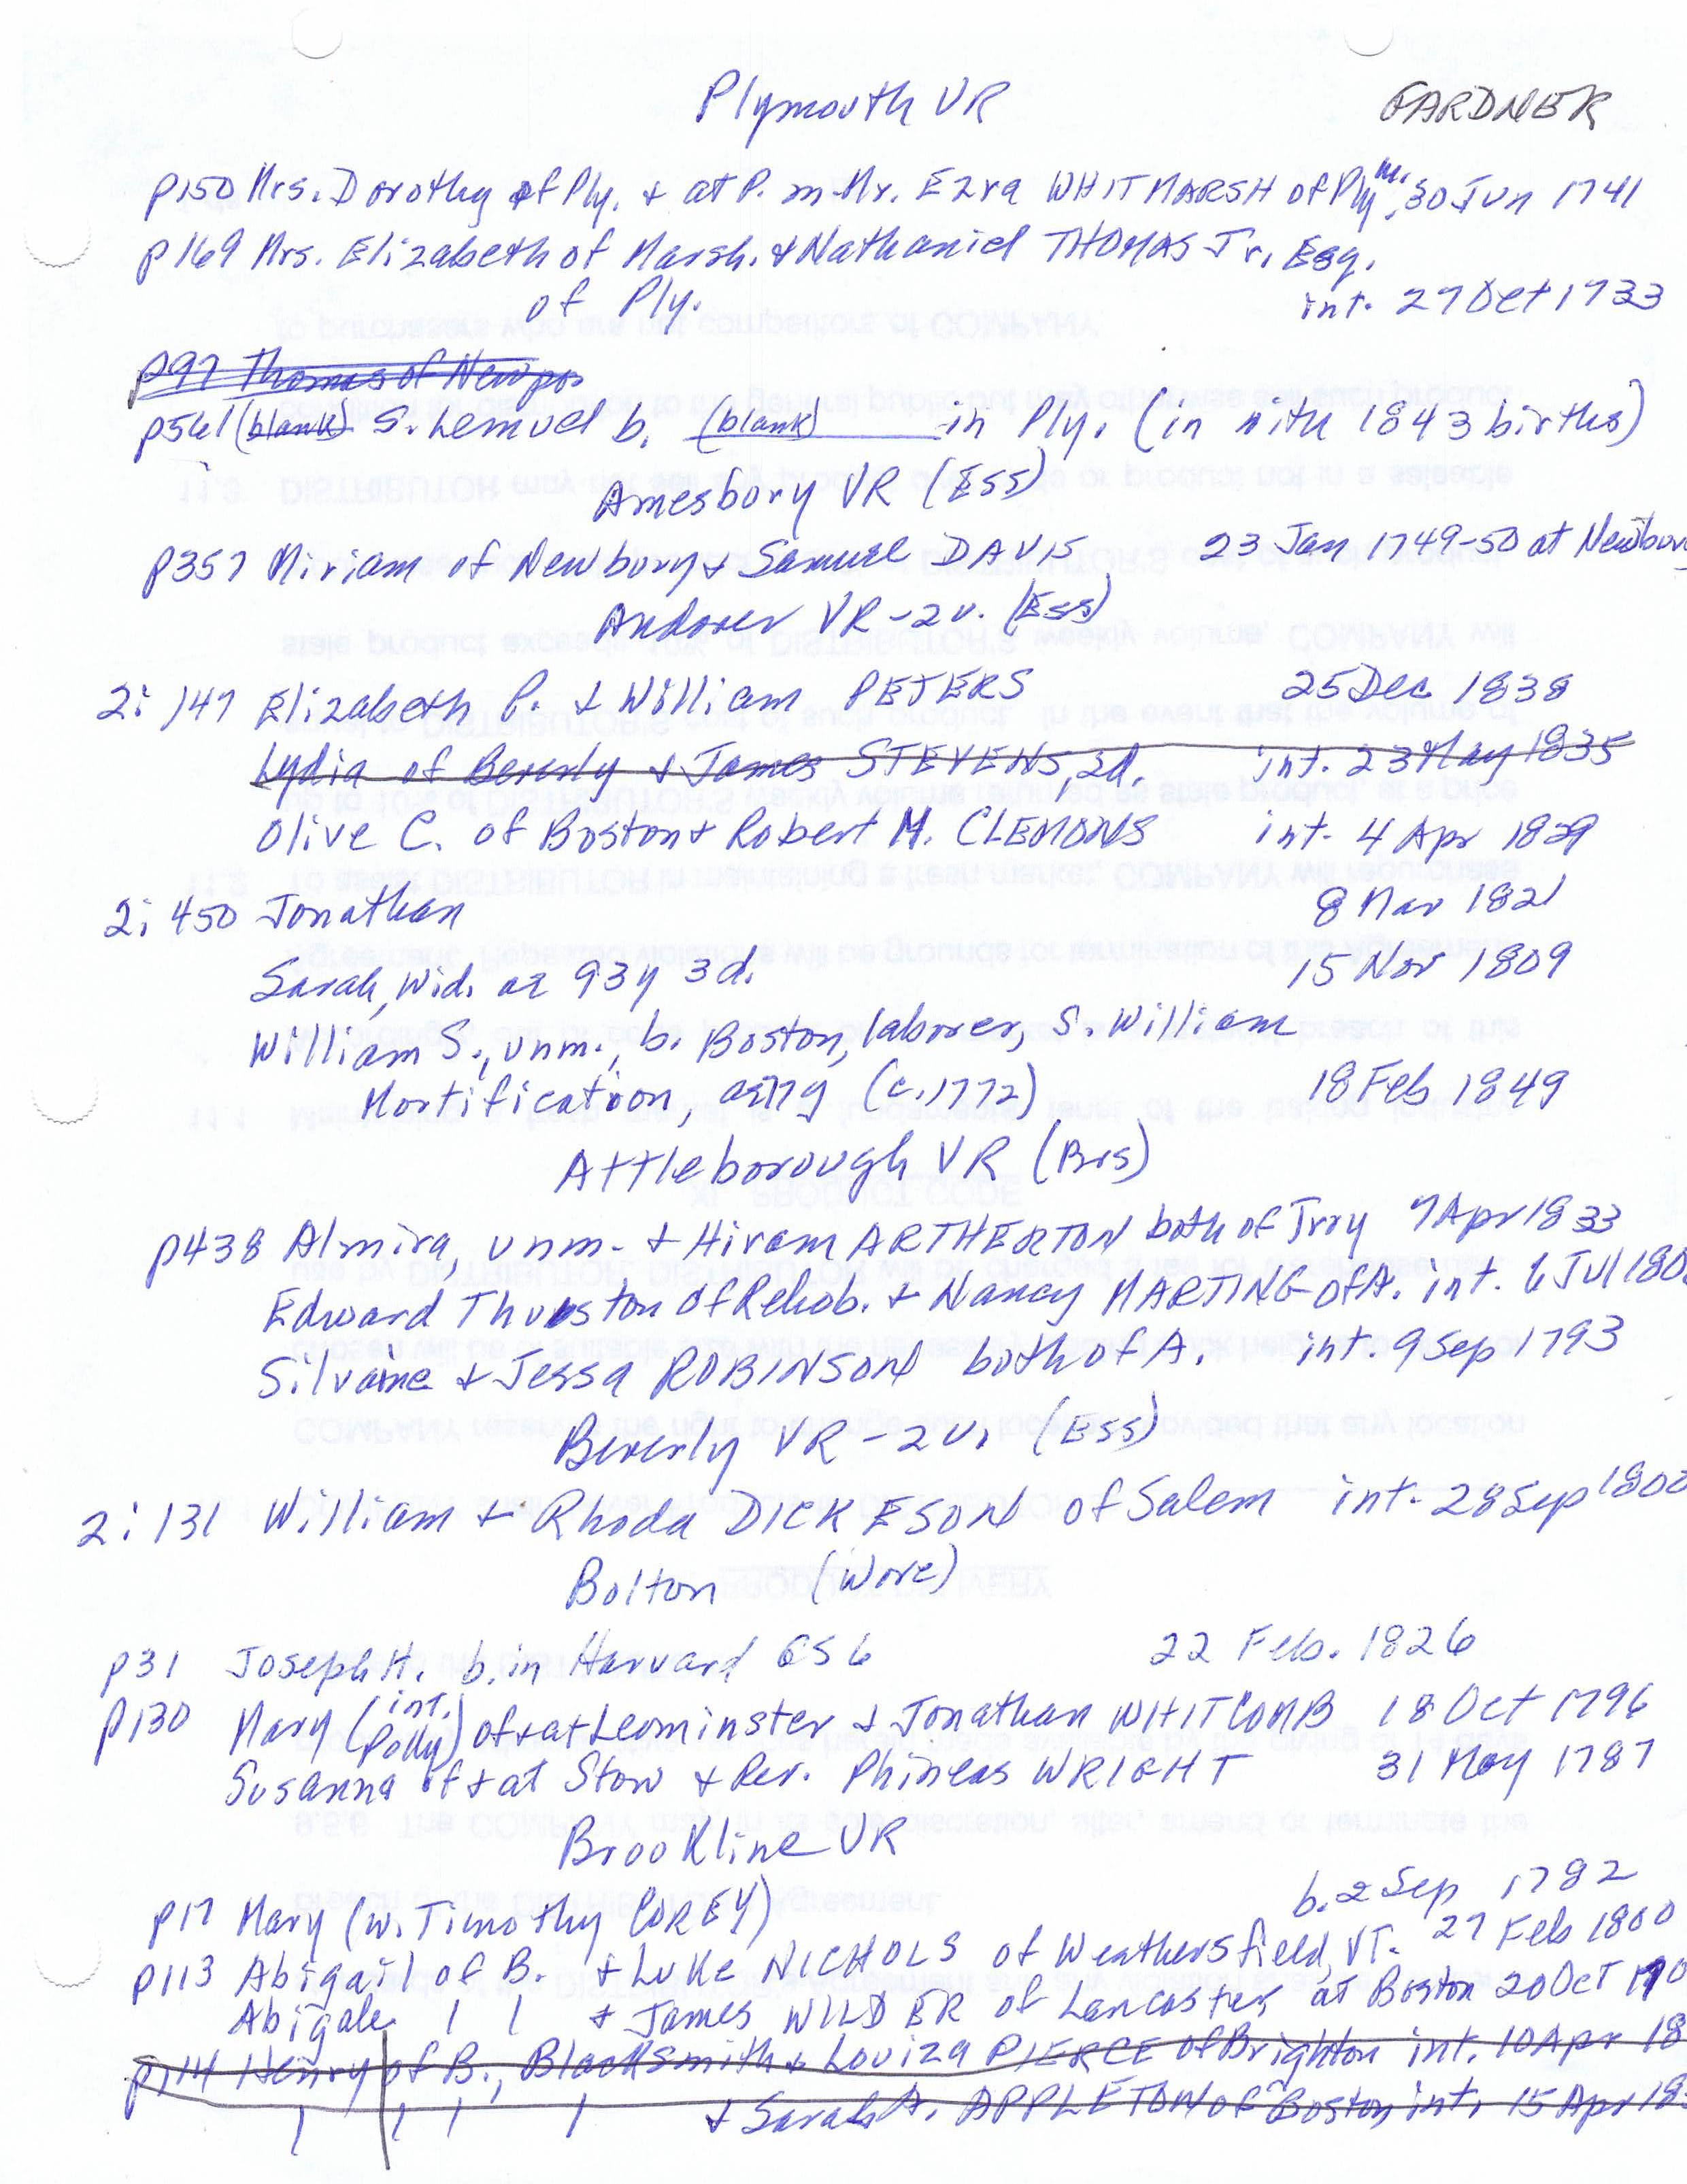 Plymouth VR GARDNER
p150 Mrs. Dorothy of Ply. & at P. m. Mr. Ezra WHITMARSH of Plym. 30 Jun 1741
p169 Mrs. Elizabeth of Marsh. & Nathaniel THOMAS Jr., Esq.
of Ply. int. 27 Oct 1733
p97 Thomas of Newpo
p561 (blank) S. Lemuel b. (blank) in Ply. (in with 1843 births)
Amesbury VR (Ess)
p357 Miriam of Newbury & Samuel DAVIS 23 Jan 1749-50 at Newbury
Andover VR - 2v. (Ess)
2: 147 Elizabeth P. & William PETERS 25 Dec 1838
Lydia of Beverly & James STEVENS, 3d. int. 23 May 1835
Olive C. of Boston & Robert M. CLEMONS int. 4 Apr 1829
2: 450 Jonathan 8 Mar 1821
Sarah, Wid. ae 93y 3d. 15 Nov 1809
William S., unm., b. Boston, laborer, S. William
Mortification, ae 77y (c.1772) 18 Feb 1849
Attleborough VR (Brs)
p438 Almira, unm. & Hiram ARTHERTON both of Troy 7 Apr 1833
Edward Thurston of Rehob. & Nancy MARTING of A. int. 6 Jul 180
Silvaine & Jessa ROBINSON both of A. int. 9 Sep 1793
Beverly VR - 2v. (Ess)
2: 131 William & Rhoda DICKESON of Salem int. 28 Sep 1800
Bolton (Worc)
p31 Joseph H. b. in Harvard GS6 22 Feb. 1826
p130 Mary (int. Polly) of & at Leominster & Jonathan WHITCOMB 18 Oct 1796
Susanna of & at Stow & Rev. Phineas WRIGHT 31 May 1787
Brookline VR
p17 Mary (w. Timothy COREY) b. 2 Sep 1782
p113 Abigail of B. & Luke NICHOLS of Weathersfield, VT. 27 Feb 1800
Abigale | | & James WILDER of Lancaster at Boston 20 Oct
p114 Henry of B., Blacksmith & Louiza PIERCE of Brighton int. 10 Apr 18
| | | | & Sarah A. APPLETON of Boston int. 15 Apr 18